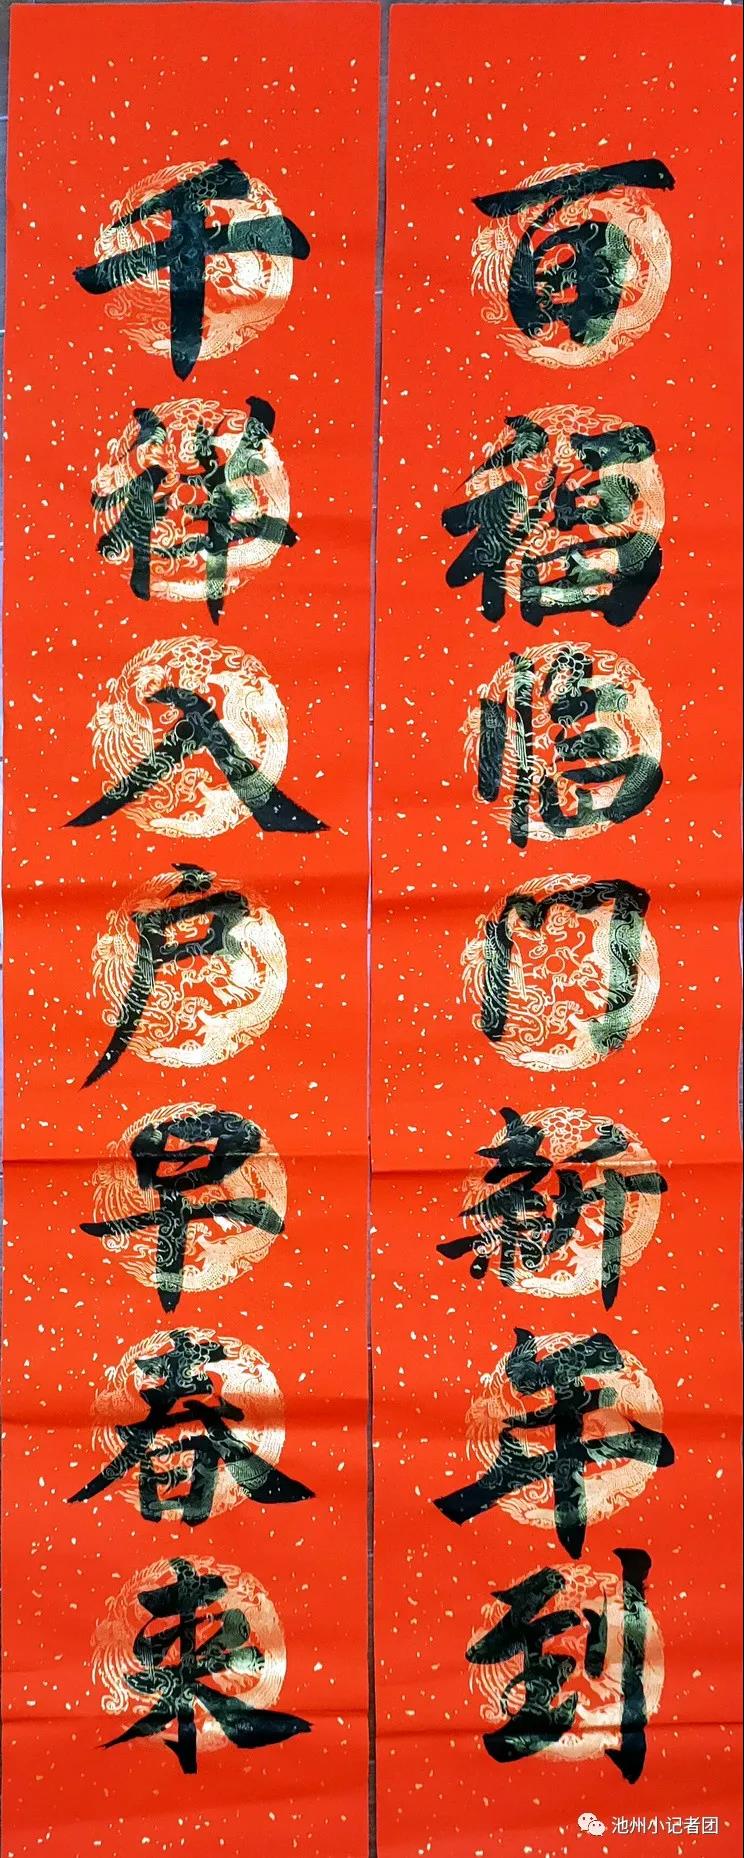 百福临门新年到
千祥入户早春来
池州小记者团